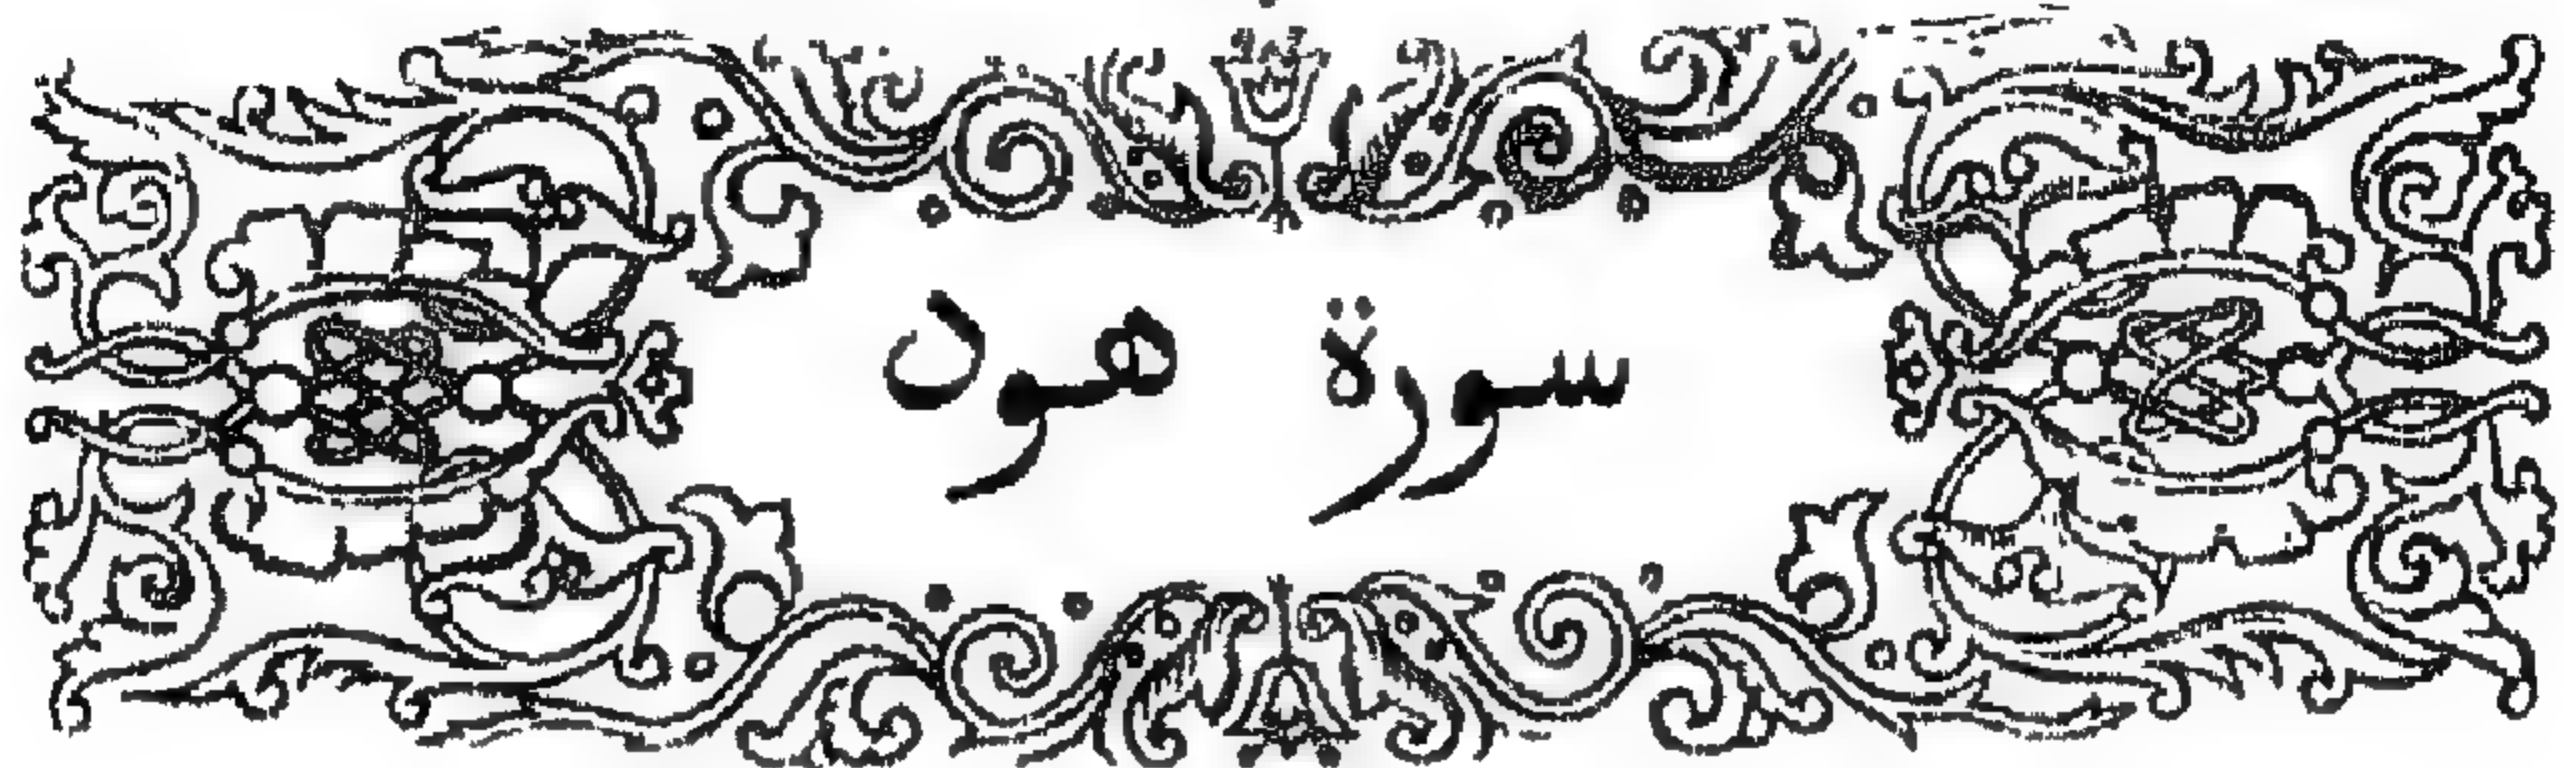 سورة هود